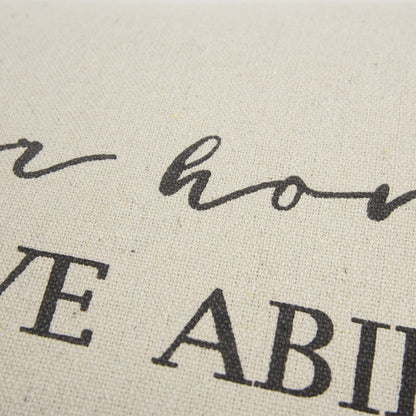 r hom
VE ABID